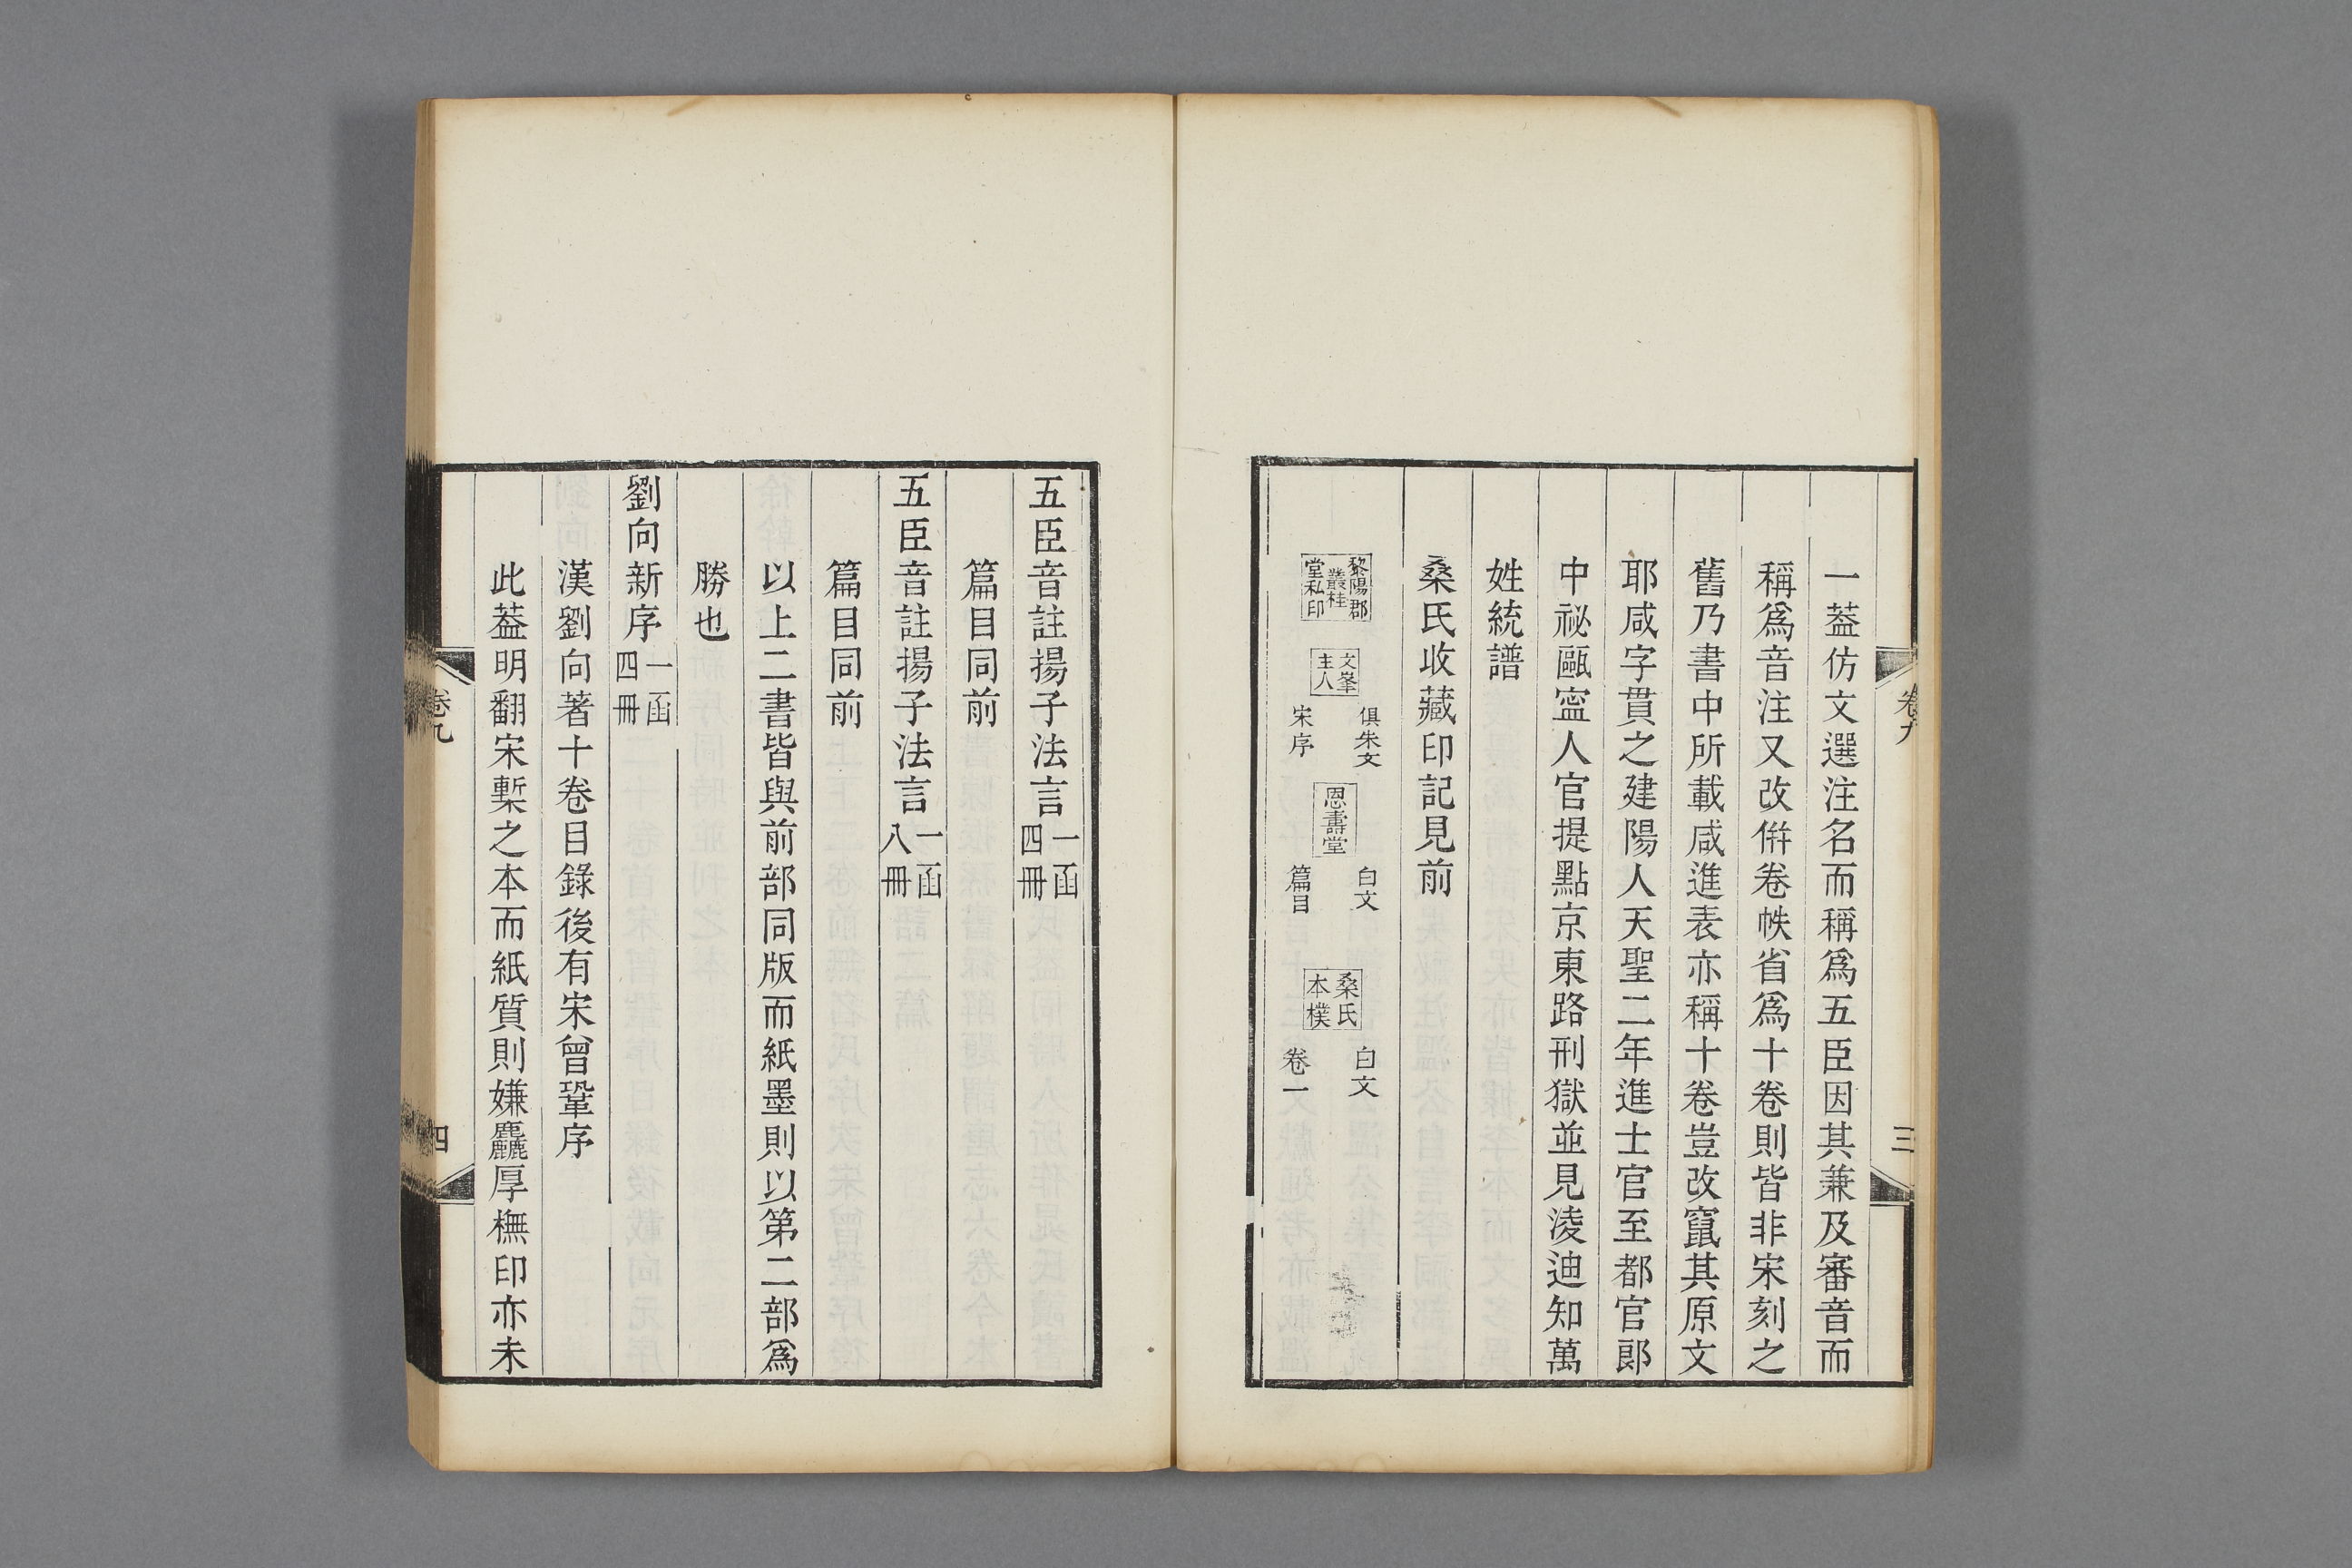 卷九
三
一葢仿文選注名而稱爲五臣因其兼及審音而
稱爲音注又改倂卷帙省爲十卷則皆非宋刻之
舊乃書中所載咸進表亦稱十卷豈改竄其原文
耶咸字貫之建陽人天聖二年進士官至都官郎
中祕甌寍人官提點京東路刑獄並見淩迪知萬
姓統譜
桑氏收藏印記見前
黎陽郡
叢桂
堂私印
文峯
主人
俱朱文
宋序
恩壽堂
白文
篇目
桑氏
本樸
白文
卷一
五臣音註揚子法言一函
四冊
篇目同前
五臣音註揚子法言一函
八冊
篇目同前
以上二書皆與前部同版而紙墨則以第二部爲
勝也
劉向新序一函
四冊
漢劉向著十卷目錄後有宋曾鞏序
此葢明翻宋槧之本而紙質則嫌麤厚橅印亦未
卷九
四